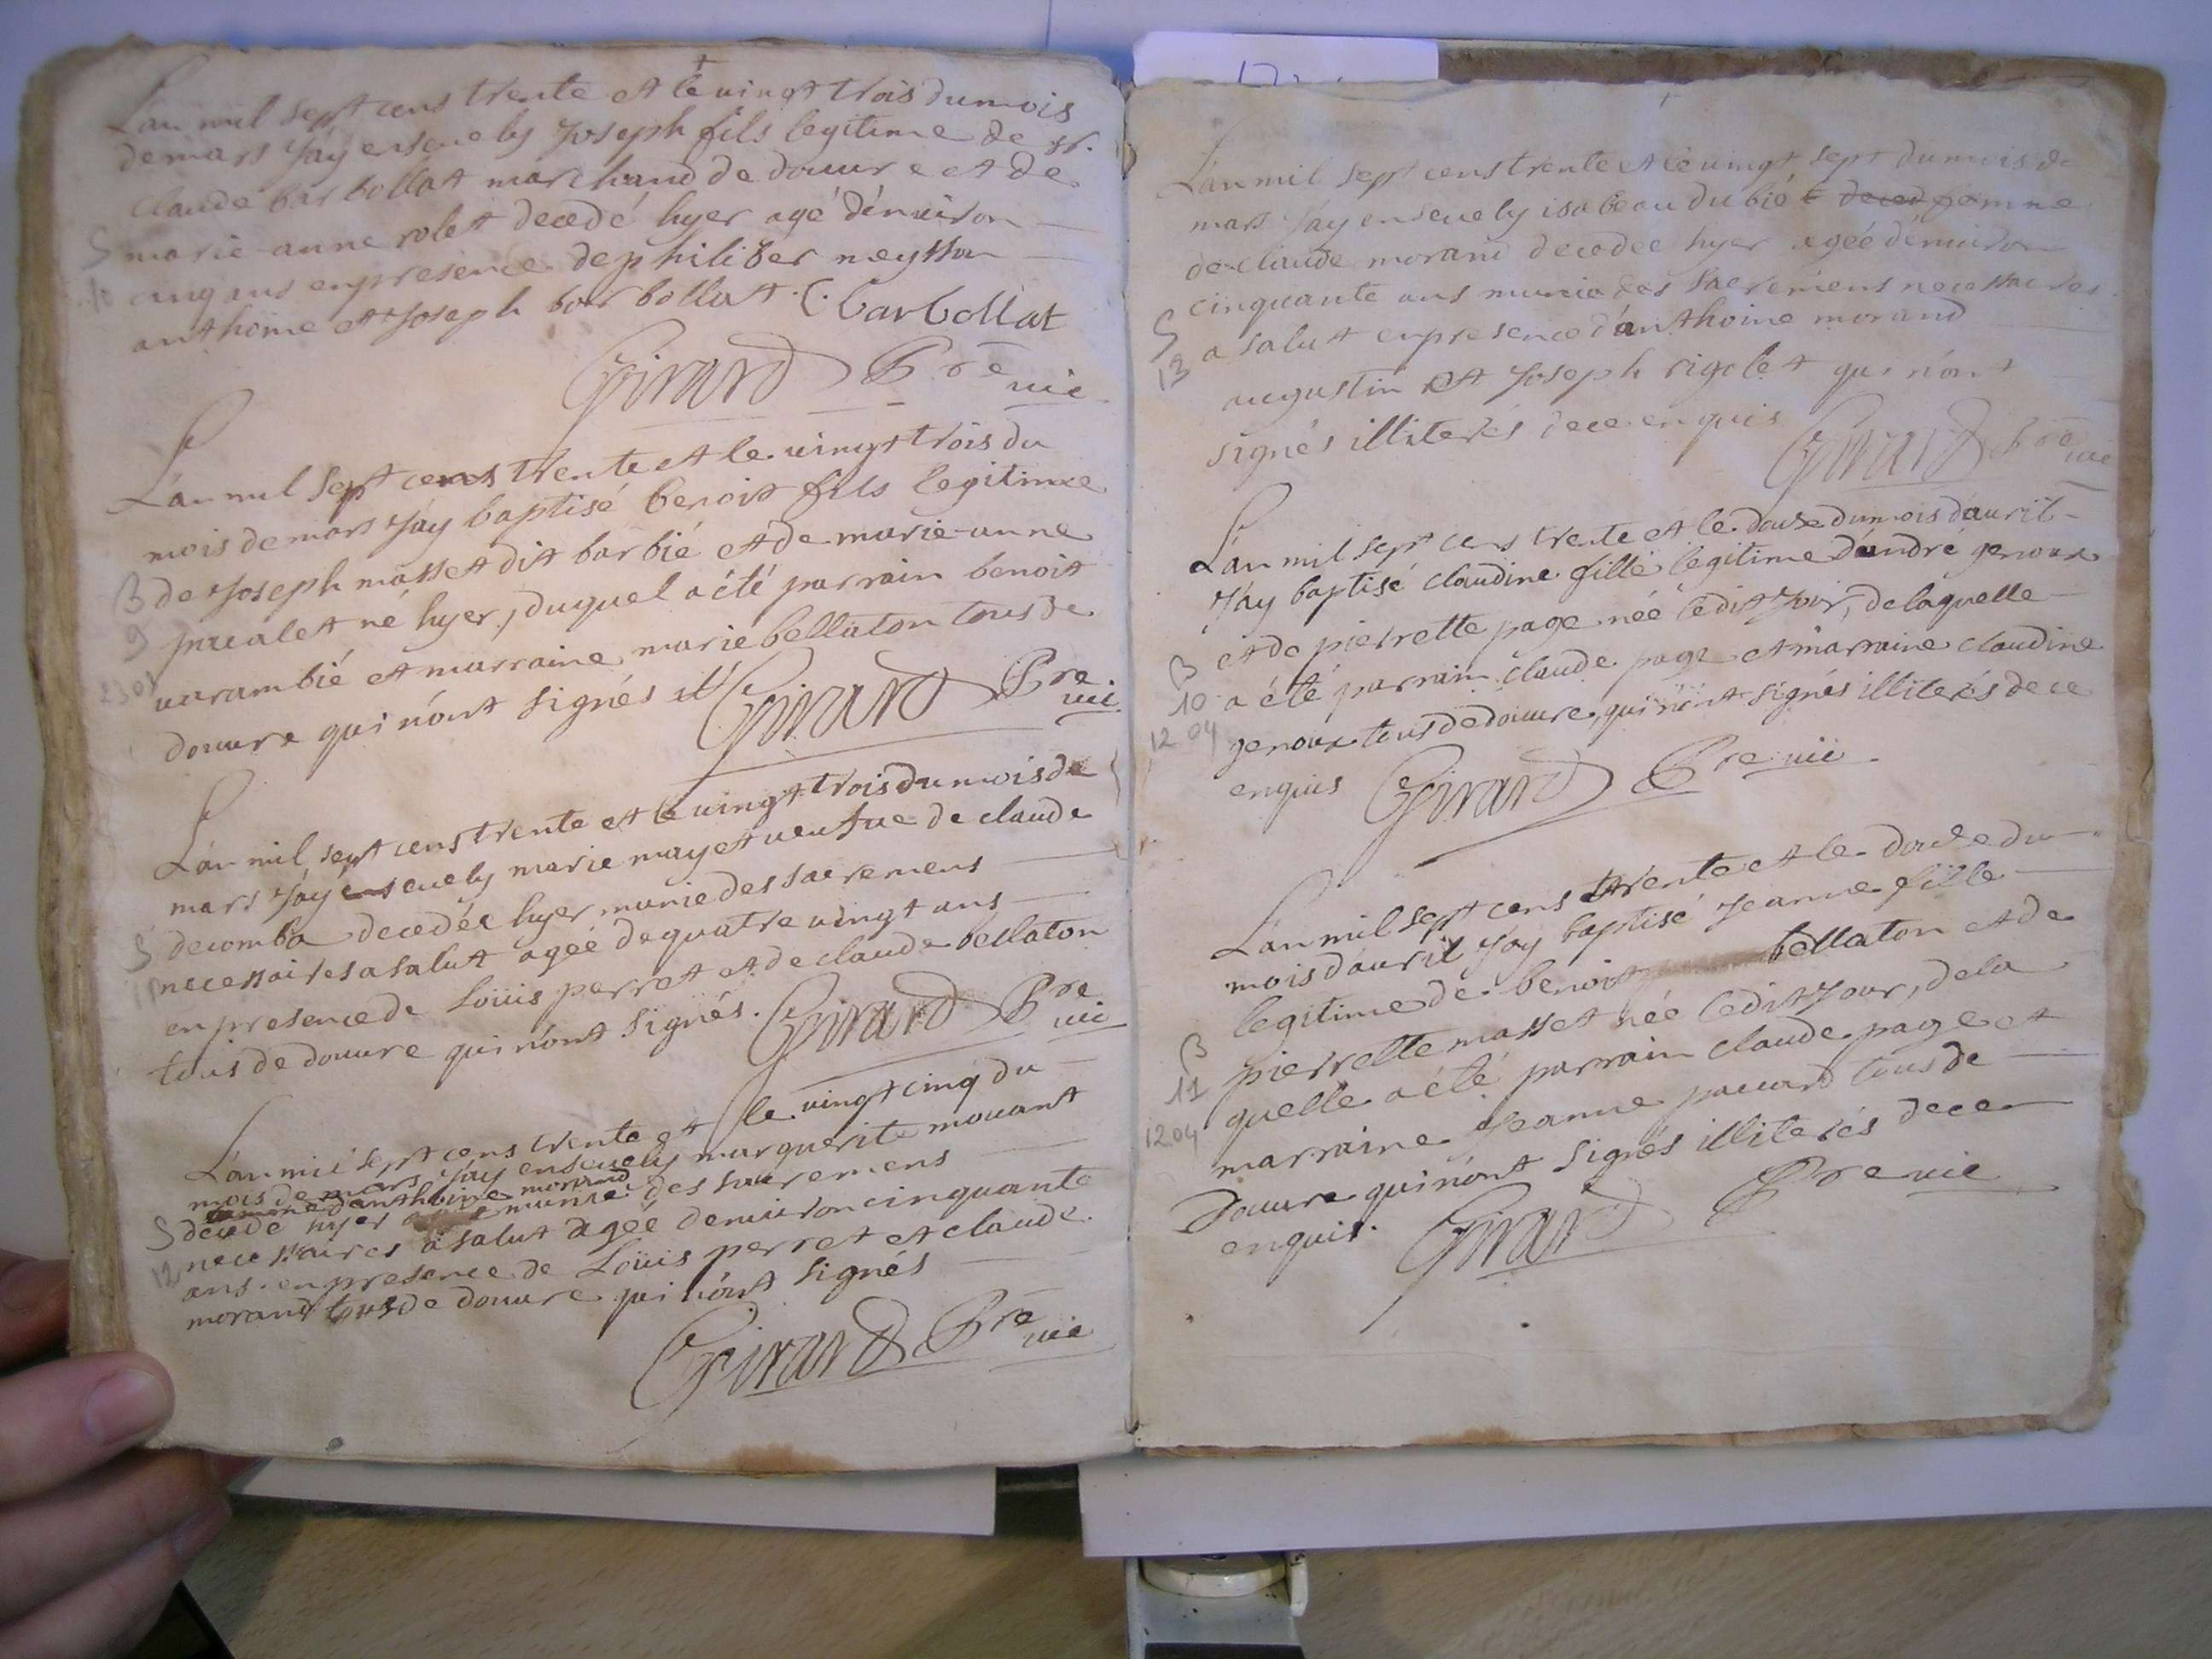 Lan mil sept cens trente et le vingt trois du mois
de mars j'ay ensevely joseph fils legitime de sr.
claude barbollat marchand de douvre et de
S marie-anne rolet decedé hyer agé dénviron
10 cinq ans enpresence de philiber neysson
anthoine et joseph barbollat. C. barbollat
Girard Pre vic
L'an mil sept cens trente et le vingt trois du
mois de mars j'ay baptisé benoit fils legitime
B de joseph masset dit barbié et de marie-anne
9 né hyer, duquel a été parrain benoit
2303 varambié et marraine marie bellaton tous de
douvre qui n'ont signés ill Girard Pre vic
L'an mil sept cens trente et le vingt trois du mois de
mars j'ay ensevely marie mayet veufve de claude
S decomba decedée hyer munie des sacremens
11 necessaires a salut agée de quatre vingt ans
en presence de Loüis perret et de claude bellaton
tous de douvre qui n'ont signés. Girard Pre vic
L'an mil sept cens trente et le vingt cinq du
mois de mars j'ay ensevely marguerite mouant
femme d'anthoine morand
S decedé hyer munie des sacremens
12 necessaires a salut agée denviron cinquante
ans. en presence de Loüis perret et claude
morand tous de douvre qui n'ont signés
Girard Pre vic
L'an mil sept cens trente et le vingt sept du mois de
mars j'ay ensevely isabeau dubié femme
de claude morand decedee hyer agée dénviron
cinquante ans munie des sacremens necessaires
S a salut enpresence d'anthoine morand
13 augustin et joseph rigolet qui n'ont
signés illiterés de ce enquis Girard Pre vic
L'an mil sept cens trente et le douze du mois d'auril
j'ay baptisé claudine fille legitime d'andré genoux
et de pierrette page née ledit jour, de laquelle
B
10 a été parrain claude page et marraine claudine
12 04 genoux tous de douvre, qui n'ont signés illiterés de ce
enquis Girard Pre vic
L'an mil sept cens trente et le douze du
mois d'auril j'ay baptisé jeanne fille
legitime de benoit bellaton et de
B pierrette masset née ledit jour, de la
11 quelle a été parrain claude page et
1204 marraine jeanne pauard tous de
douvre qui n'ont signés illiterés de ce
enquis. Girard Pre vic